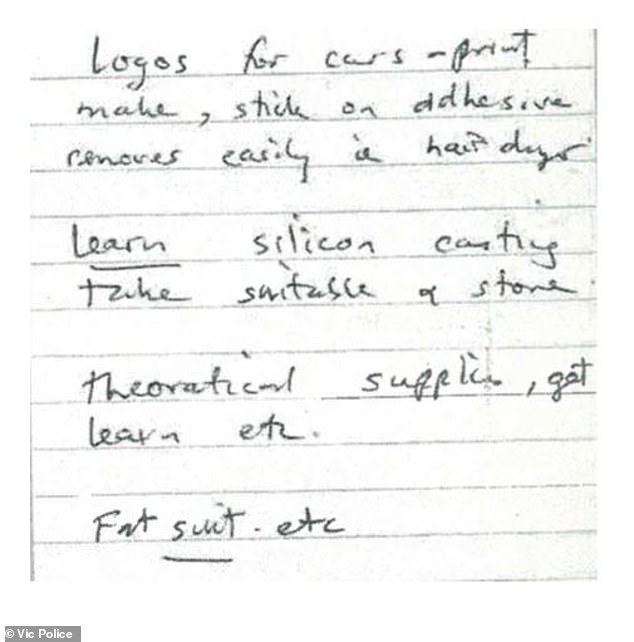 Logos for cars - print
make, stick on adhesive
removes easily ie hair dryer
Learn silicon casting
take suitable & store
theoratical supplies, get
learn etc.
Fat suit. etc
© Vic Police